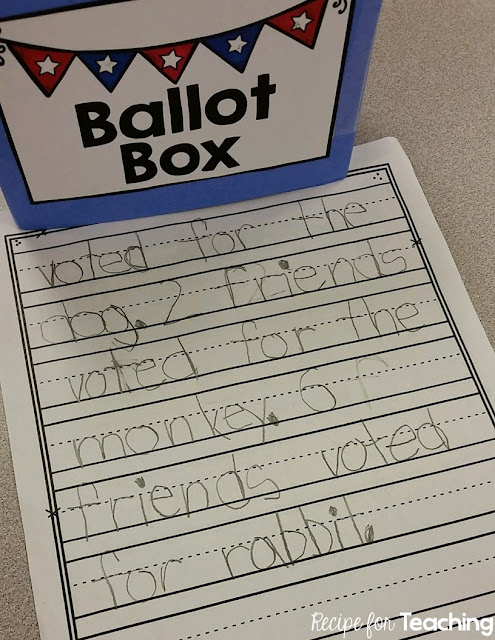 Ballot
Box
voted for the
dog. 2 friends
voted for the
monkey. 6 f
friends voted
for rabbit.
Recipe for Teaching